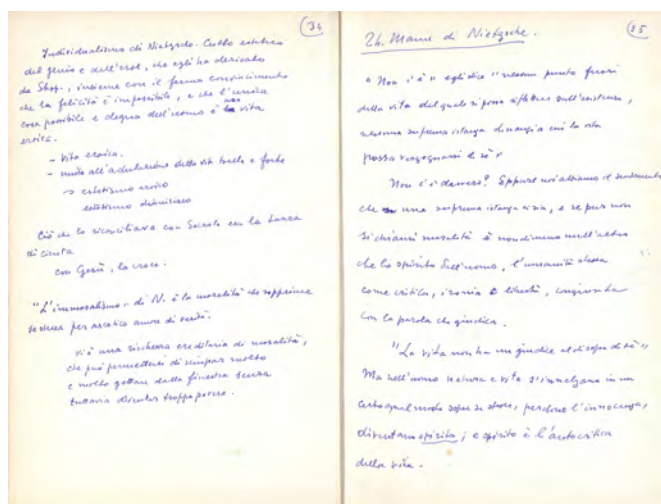 34
Individualismo di Nietzsche. Culto estetico
del genio e dell'eroe, che egli ha derivato
da Shop., insieme con il fermo convincimento
che la felicità è impossibile, e che l'unica
cosa possibile e degna dell'uomo è una vita
eroica.
- Vita eroica.
- unita all'adulazione della vita bella e forte
→ estetismo eroico
estetismo dionisiaco
Ciò che lo riconciliava con Socrate era la
di cicuta
con Gesù, la croce.
"L'immoralismo" di N. è la moralità che sopprime
se stessa per ascetico amore di verità.
vi è una ricchezza ereditaria di moralità,
che può permettersi di scimpar molto
e molto gettare dalla finestra senza
tuttavia diventar troppo povere.
35
Th. Mann e di Nietzsche.
"Non c'è" egli dice "nessun punto fuori
della vita dal quale si possa riflettere sull'esistenza,
nessuna suprema istanza dinanzi a cui la vita
possa vergognarsi di sé"
Non c'è davvero? Eppure noi abbiamo il sentimento
che una suprema istanza vi sia, e se pur non
si chiami moralità è nondimeno null'altro
che lo spirito dell'uomo, l'umanità stessa
come critica, ironia e libertà, congiunta
con la parola che giudica.
"La vita non ha un giudice al disopra di sé"
Ma nell'uomo natura e vita s'innalzano in un
certo qual modo sopra se stesse, perdono l'innocenza,
diventano spirito; e spirito è l'autocritica
della vita.